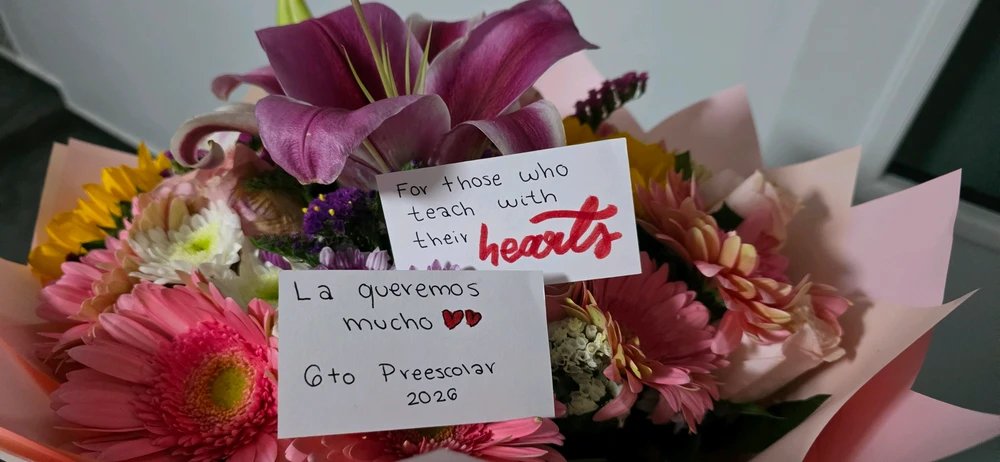 For those who
teach with
their hearts
La queremos
mucho
6to Preescolar
2026